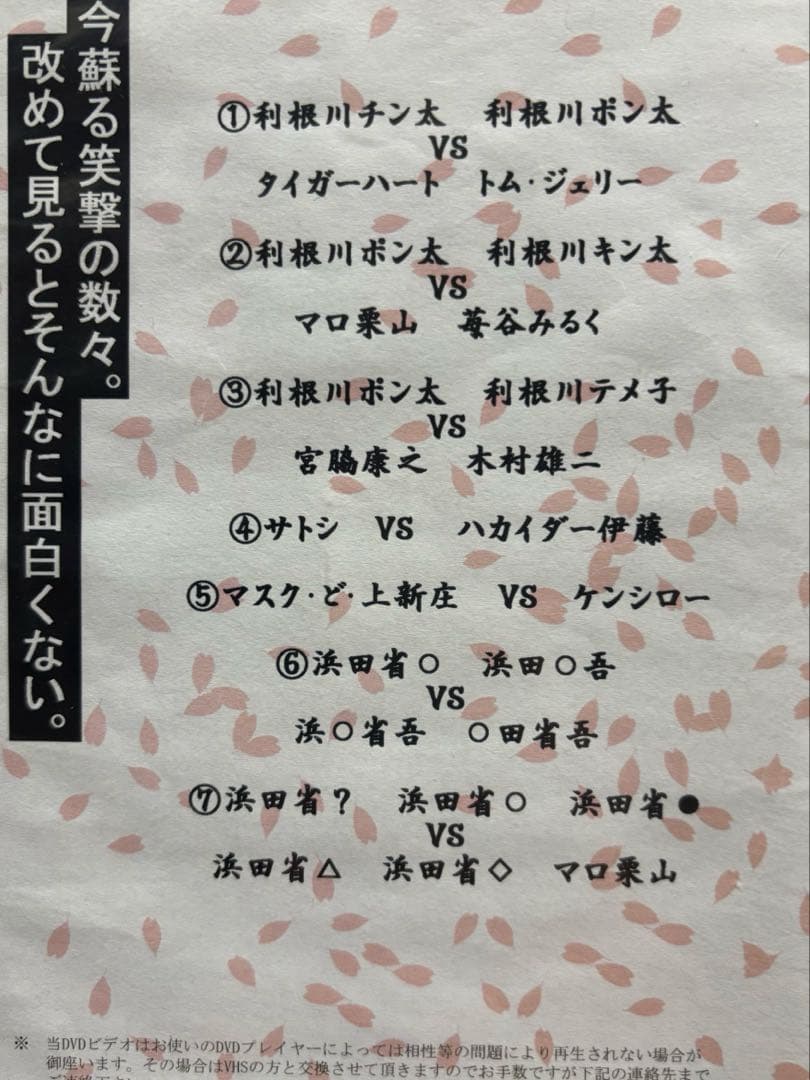 今蘇る笑撃の数々。
改めて見るとそんなに面白くない。
①利根川チン太 利根川ポン太
VS
タイガーハート トム・ジェリー
②利根川ポン太 利根川キン太
VS
マロ栗山 苺谷みるく
③利根川ポン太 利根川テメ子
VS
宮脇康之 木村雄二
④サトシ VS ハカイダー伊藤
⑤マスク・ど・上新庄 VS ケンシロー
⑥浜田省○ 浜田○吾
VS
浜○省吾 ○田省吾
⑦浜田省? 浜田省○ 浜田省●
VS
浜田省△ 浜田省◇ マロ栗山
※ 当DVDビデオはお使いのDVDプレイヤーによっては相性等の問題により再生されない場合が
御座います。その場合はVHSの方と交換させて頂きますのでお手数ですが下記の連絡先まで